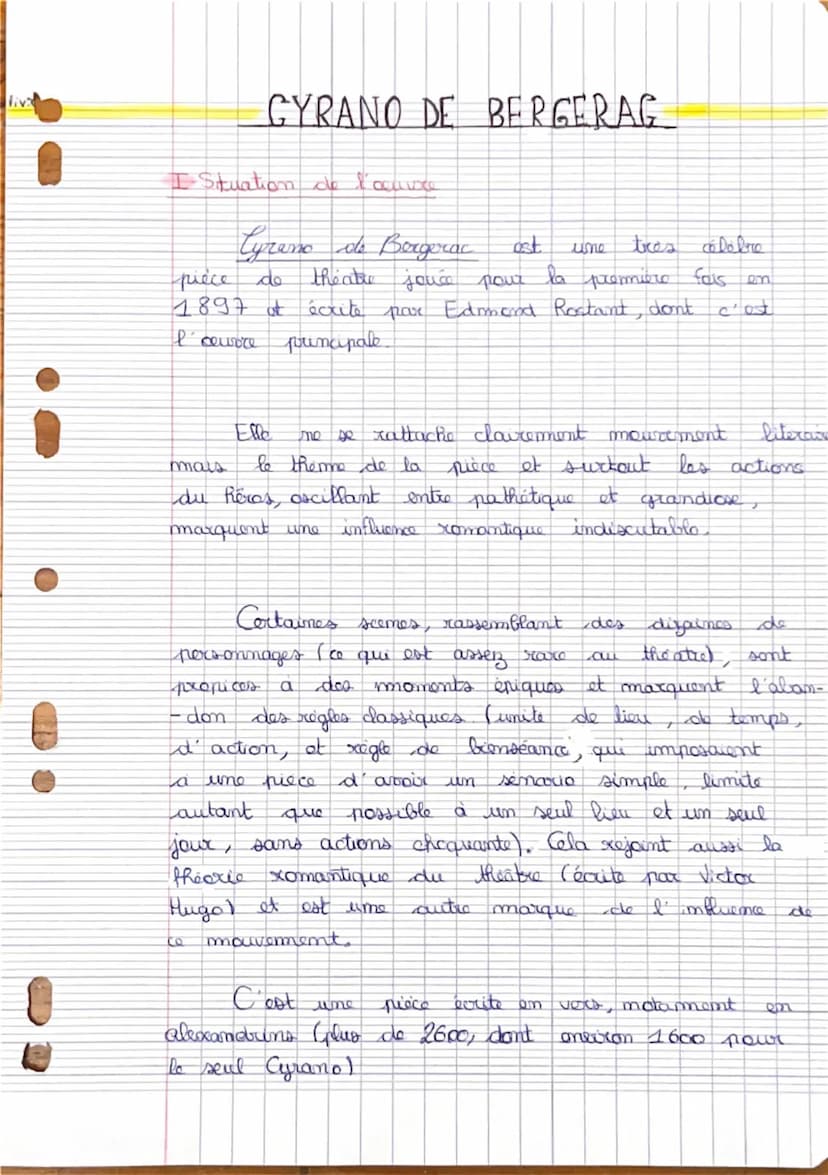 CYRANO DE BERGERAC
I Situation de l'œuvre
Cyrano de Bergerac est une très célèbre
pièce de théatre jouée pour la première fois en
1897 et écrite par Edmond Rostant, dont c'est
l'œuvre principale.
Elle ne se rattache clairement mouvement literair
mais le thème de la pièce et surtout les actions
du héros, oscillant entre pathétique et grandiose,
marquent une influence romantique indiscutable.
Certaines scenes, rassemblant des dizaines de
personnages (ce qui est assez rare au théatre), sont
propices à des moments épiques et marquent l'aban-
-don des règles classiques (unité de lieu, de temps,
d'action, et règle de bienséance, qui imposaient
à une pièce d'avoir un sénario simple, limité
autant que possible à un seul lieu et un seul
jour, sans actions choquante). Cela rejoint aussi la
théorie romantique du théâtre (écrite par Victor
Hugo) et est une autre marque de l'influence de
ce mouvement.
C'est une pièce écrite en vers, notamment en
alexandrins (plus de 2600, dont environ 1600 pour
le seul Cyrano)